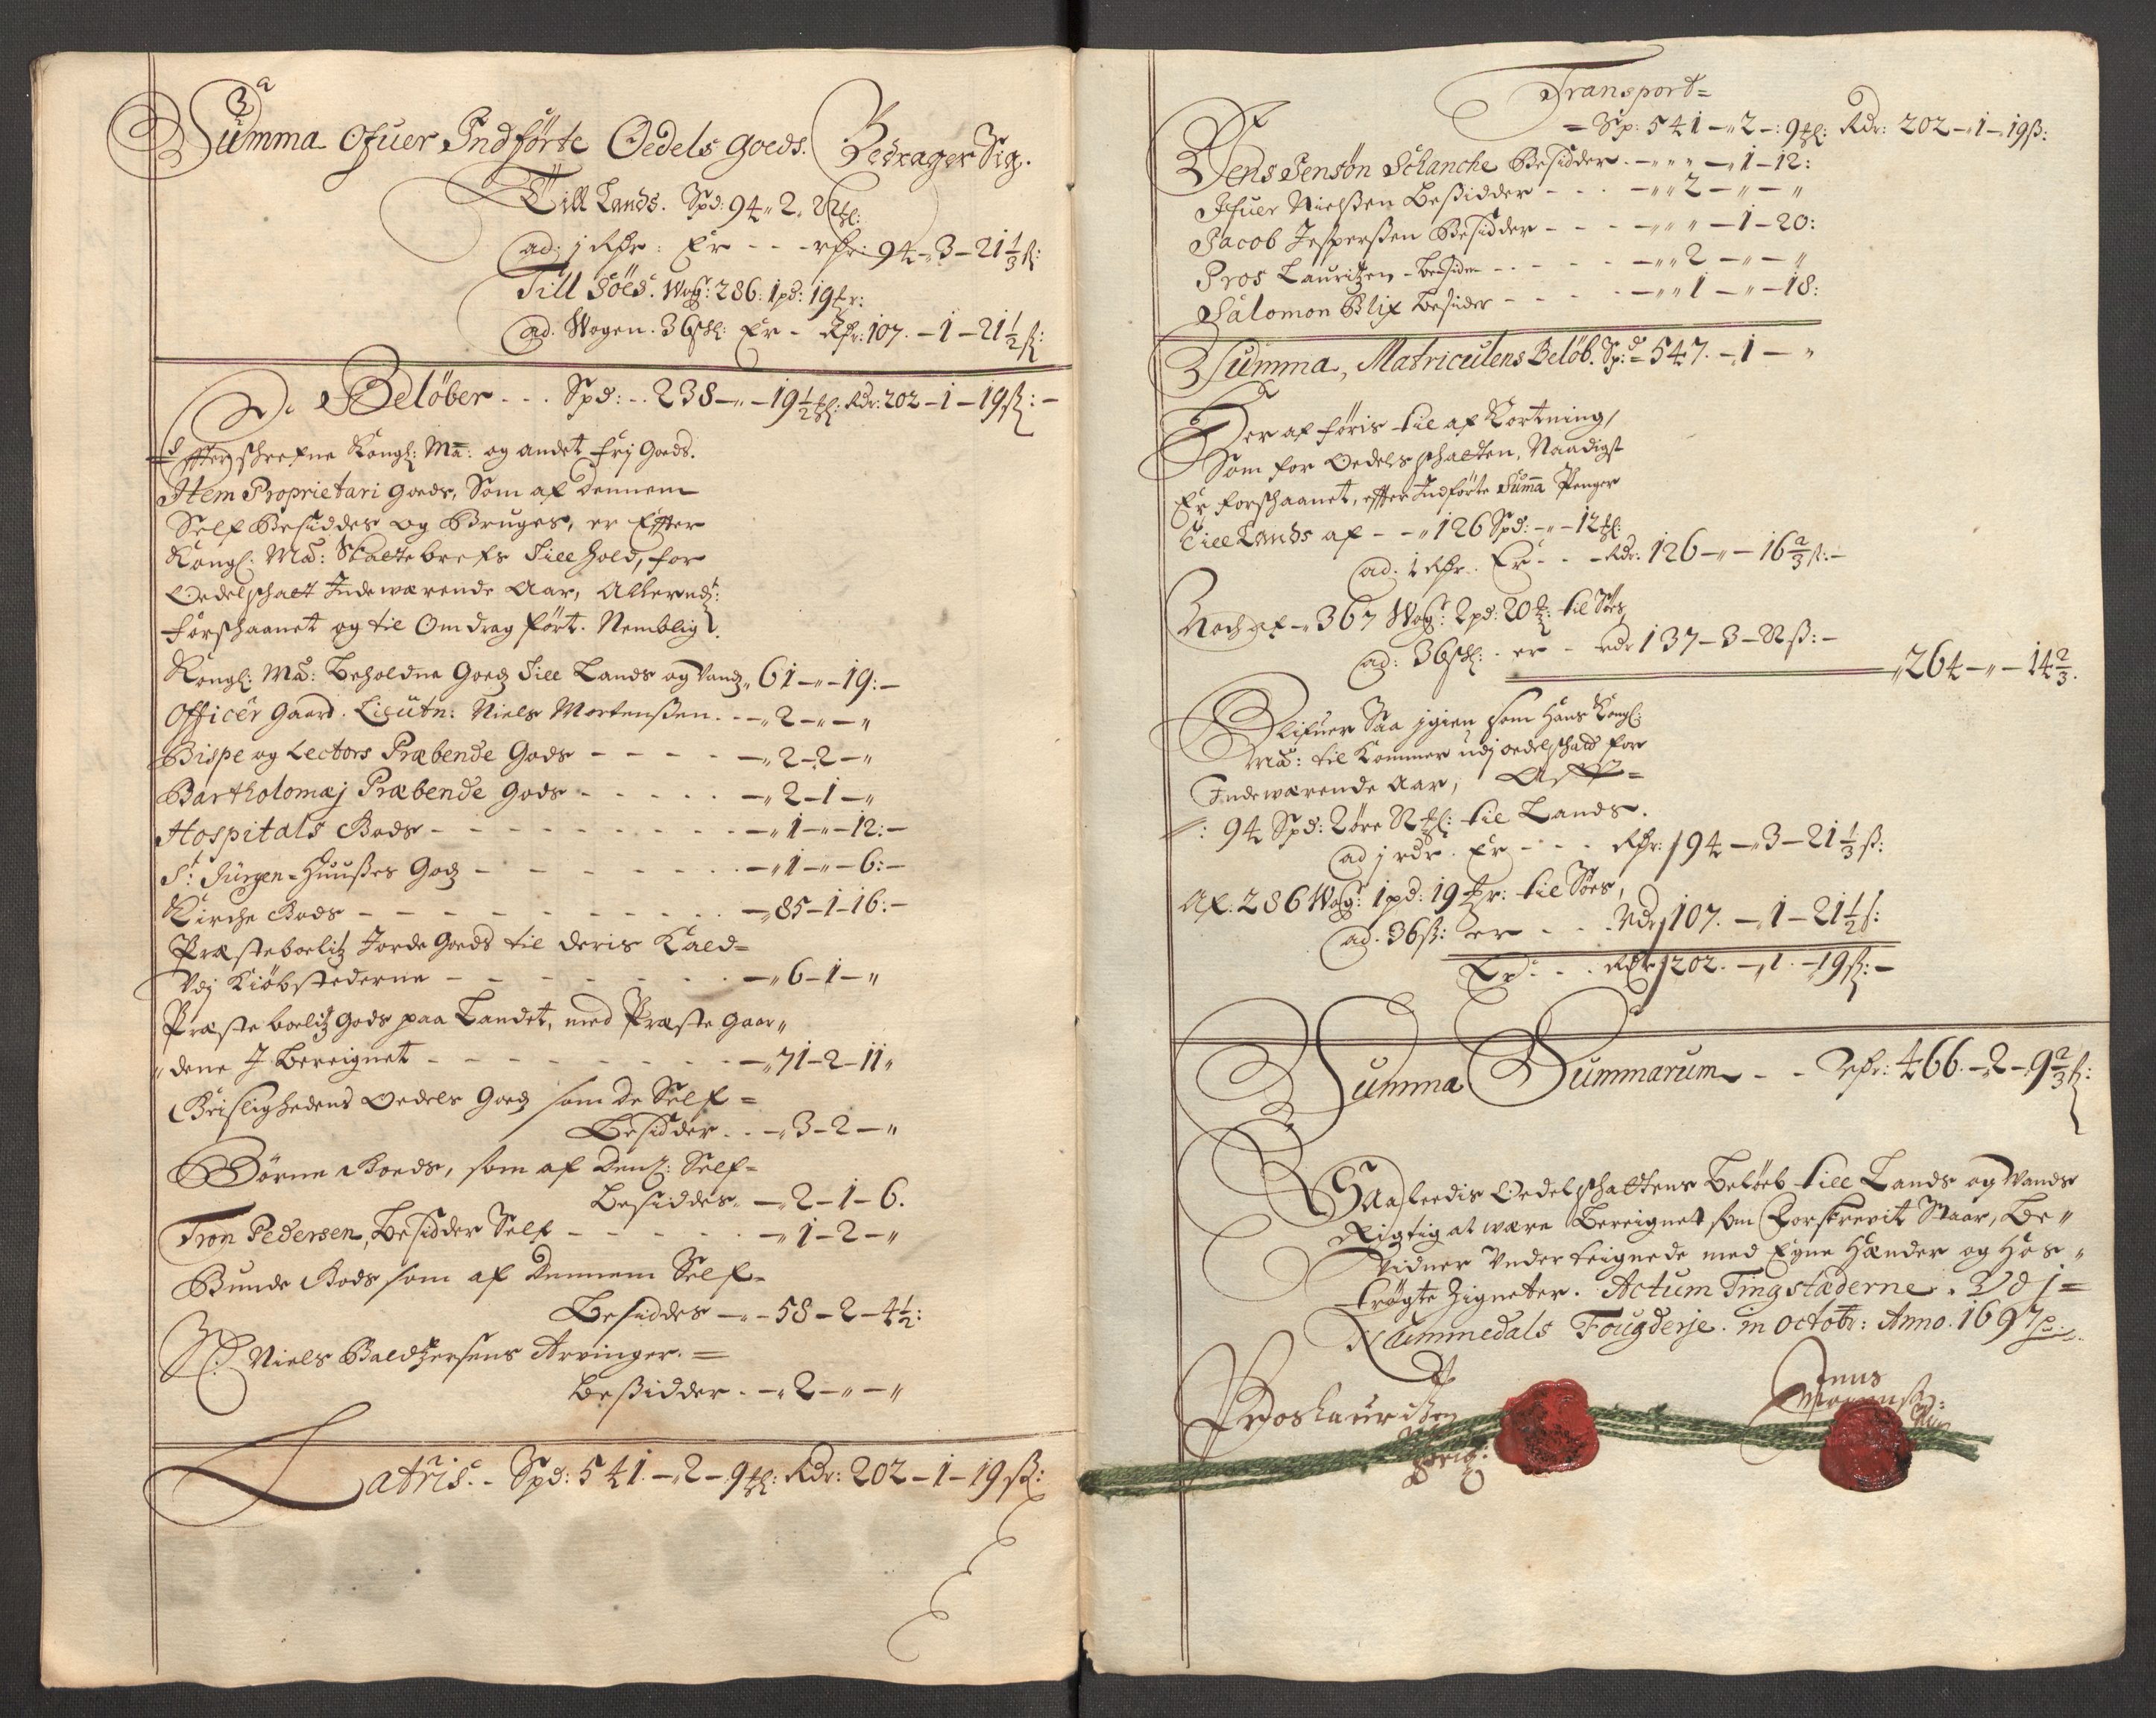 Summa Ofuer Indförte Oedels goeds. Bedrager Sig.
Till Lands. Spd: 94 „ 2 „ 22 ſl:
ad: j Rdr: Er - - - rdr: 94 – 3 – 21 1/3 ß:
Till Söes. Wog: 286: 1 pd: 19 r:
ad. Wogen. 36 ßl: Er - Rdr: 107. – 1 – 21 1/2 ß:
Beløber - - . Spd: - . 238 – „ – 19 1/2 ſl: Rdr: 202 – 1 – 19 ß: –
Effterschrefne Kongl: Ma: og andet frj Goeds.
Item Proprietari goeds, Som af dennem
Self Besiddes og Bruges, er Effter
Kongl: Ma: Skatte brefs Till hold, for
Oedelschatt Indewærende Aar, Allernd:
forschaanet og til Omdrag ført. Nemblig
Kongl: Ma: beholdne Goedz Till Lands og Vandz „ 61 – „ – 19: –
Officer gaard. Lieutn: Niels Mortenßen. - – „ 2 – „ – „
Bispe og Lectors Præbende Gods - - - - – „ 2 – 2 – „
Bartholomæj Præbende gods - - - - - – „ 2 – 1 – „
Hospitals Gods - - - - - - - – „ 1 – „ – 12: –
St: Jürgen-Huußes God - - - - - - – „ 1 – „ – 6: –
Kirche Gods - - - - - - - – „ 85 – 1 – 16: –
Præsteboelitz Jorde Goeds til deris Kald=
Vdj Kiöbstederne - - - - - - – „ 6 – 1 – „
Præste boelitz Gods paa Landet, med Præste gaar „
„ dene J bereignet - - - - - - – „ 71 – 2 – 11 „
Geislighedens Oedels Goedz som de Self =
Besidder. - – „ 3 – 2 – „
Börne Goeds, som af denß: Self=
besiddes. – „ 2 – 1 – 6.
Tron Pedersen, besidder Self - - - - – „ 1 – 2 – „
Bunde Gods som af dennem Self=
Besiddes – „ – 58 – 2 – 4 1/2:
Sl: Niels Baldtzersens Arvinger. =
beßidder. – „ 2 – „ – „
Latris. - Spd: 541. – „ 2 – 9 ſl: Rdr: 202 – 1 – 19 ß:
Transport=
= Sp: 541 – „ 2 – 9 ſl: Rdr: 202 – 1 – 19 ß:
Jens Jensön Schanche Besidder. – „ „ – „ 1 – 12:
Ifuer Nielßen beßidder - - - – „ „ 2 – „ – „
Jacob Jesperßen Besidder - - - – „ „ – 1 – 20:
Pros Lauritzen - besider - - - – „ „ 2 – „ – „
Salomon Blix besider - - - – „ „ 1 – „ – 18:
Summa, Matriculens Belöb. Spd = 547. – 1 – „
Der af föris til af Kortning,
Som for Oedelsschatten, Naadigst
Er forschaanet, effter Indförte Suma Penger
Till Lands af - - „ 126 Spd: – „ – 12 ſl:
ad. 1 Rdr. Er - - - Rdr: 126 – „ – 16 2/3 ß: –
Noch af – „ 367 Wog: 2 pd: 20 til Söes,
ad: 36 ßl: - er - rdr 137 – 3 – 22 ß: –
„ 264 – „ – 14 2/3.
Blifuer Saa jgien som Hans Kongl:
Ma: til Kommer udj oedelschatt for
Indewærende Aar, Aff =
: 94 Spd: 2 öre 22 ſl: til Lands.
ad j rdr. Er - - - Rdr: 94 – „ 3 – 21 1/3 ß:
Af. 286 Wog: 1 pd: 19 r: til Söes,
ad. 36 ß: er - - - Rdr 107. – „ 1 – 21 1/2 ß:
Er - - - Rdr 202. – „ 1. – 19 ß: –
Summa Summarum - - Rdr: 466. – 2 – 9 2/3 ß:
Saaleedis Oedelschattens belöeb till Lands og Vands
Rigtig at være Bereignet som Forskrevit Staar, be „
vidner Vnderteignede med Egne Hænder og Hos „
tröckte Zigneter. Actum Tingstæderne. Vdj =
Nummedals Fougderje. in Octobr: Anno. 1697
Pros Lauritzen
Jens